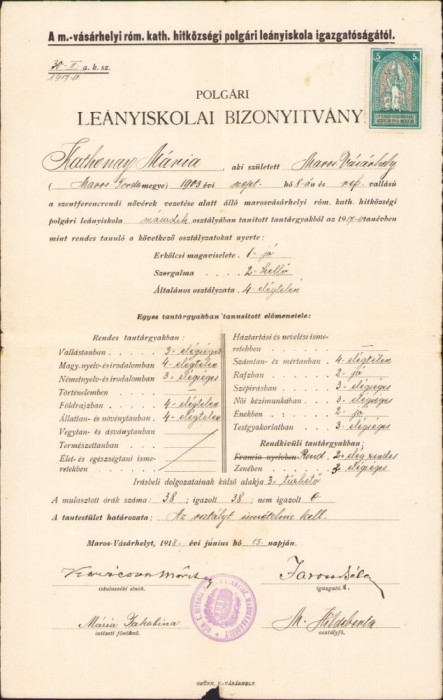 A m.-vásárhelyi róm. kath. hitközségi polgári leányiskola igazgatóságától.
a. b. sz.
5
POLGÁRI
LEÁNYISKOLAI BIZONYITVÁNY
Mária, aki született Maros Vásárhely
(Maros-Torda megye) 1903 évi szept. hó 8-án és ref. vallású
a szentferencrendi nővérek vezetése alatt álló marosvásárhelyi róm. kath. hitközségi
polgári leányiskola második osztályában tanitott tantárgyakból az 1917-18 tanévben
mint rendes tanuló a következő osztályzatokat nyerte:
Erkölcsi magaviselete 1- jó
Szorgalma 2- kellő
Általános osztályzata 4- elégtelen
Egyes tantárgyakban tanusitott előmenetele:
Rendes tantárgyakban:
Vallástanban 3- elégséges
Magy. nyelv- és irodalomban 4- elégtelen
Németnyelv- és irodalomban 3- elégséges
Történelemben
Földrajzban 4- elégtelen
Állattan- és növénytanban 4- elégtelen
Vegytan- és ásványtanban
Természettanban
Élet- és egészségtani ismeretekben
Háztartási és nevelési ismeretekben
Számtan- és mértanban 4- elégtelen
Rajzban 2- jó
Szépirásban 3- elégséges
Női kézimunkában 3- elégséges
Énekben 2- jó
Testgyakorlatban 3- elégséges
Rendkivüli tantárgyakban:
Francia nyelvben Rend.
Zenében 3- elégséges
Irásbeli dolgozatainak külső alakja 3-
A mulasztott órák száma: 38; igazolt 38; nem igazolt 0
A tantestület határozata: Az osztályt ismételnie kell.
Maros-Vásárhelyt, 1918. évi junius hó 15. napján.
iskolaszéki elnök.
igazgató
Mária Jakobina
intézeti főnöknő.
M. Hildeberta
osztályfő.